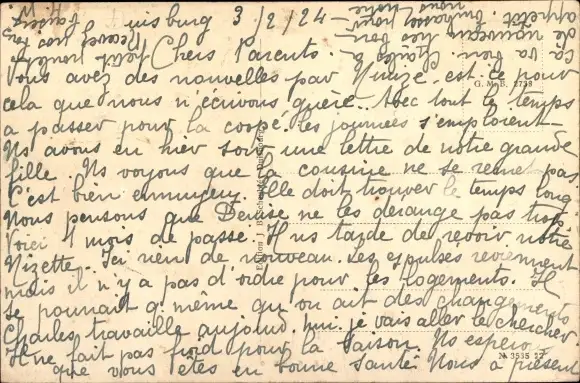 uisburg 3/2/24 -
Chers Parents.
Vous avez des nouvelles par Nizze. est ce pour
cela que nous n'écrivons guère. Avec tout le temps
a passer pour la coopé, les journées s'emploient
Ns avons eu hier soir une lettre de notre grande
fille. Ns voyons que la cousine ne se remet pas
C'est bien ennuyeux. Elle doit trouver le temps long
Nous pensons que Denise ne les dérange pas trop
Voici 1 mois de passé. Il ns tarde de revoir notre
Nizette. Ici rien de nouveau. Les expulsés reviennent
mais il n'y a pas d'ordre pour les logements. Il
se pourrait q. même qu'on ait des changements
Charles travaille aujourd'hui, je vais aller le chercher
Il ne fait pas froid pour la saison. Ns espero
que vous êtes en bonne santé. Nous à présent
ça va bien. Charles a
de nouveau les
G. M. B. 2738
Edition
№ 3535 22
Recevez nos
baisers